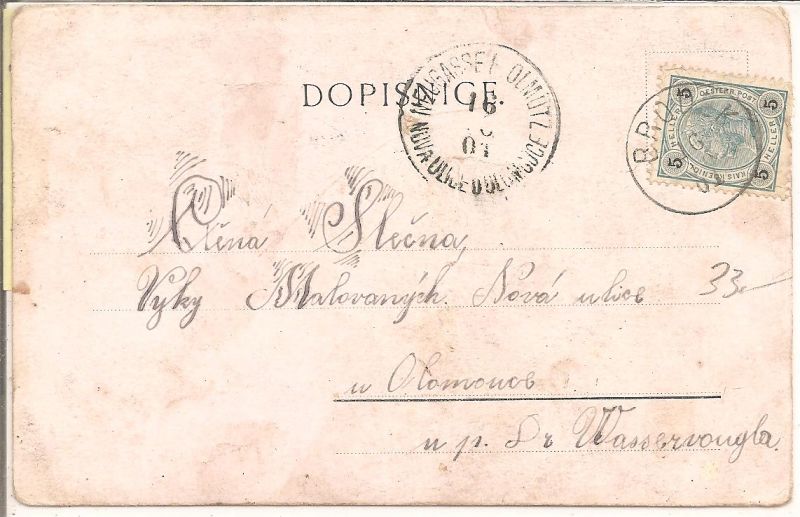 DOPISNICE.
NEUGASSE b. OLMÜTZ
16
01
NOVÁ ULICE U OLOMOUCE
OESTERR. POST
5 5
HELLER HELLER
5 5
KAIS KOENIGL
BRO
Ctěná Slečna,
Vyky Malovaných. Nová ulice 33
u Olomouce
u p. Dr Wasservougla